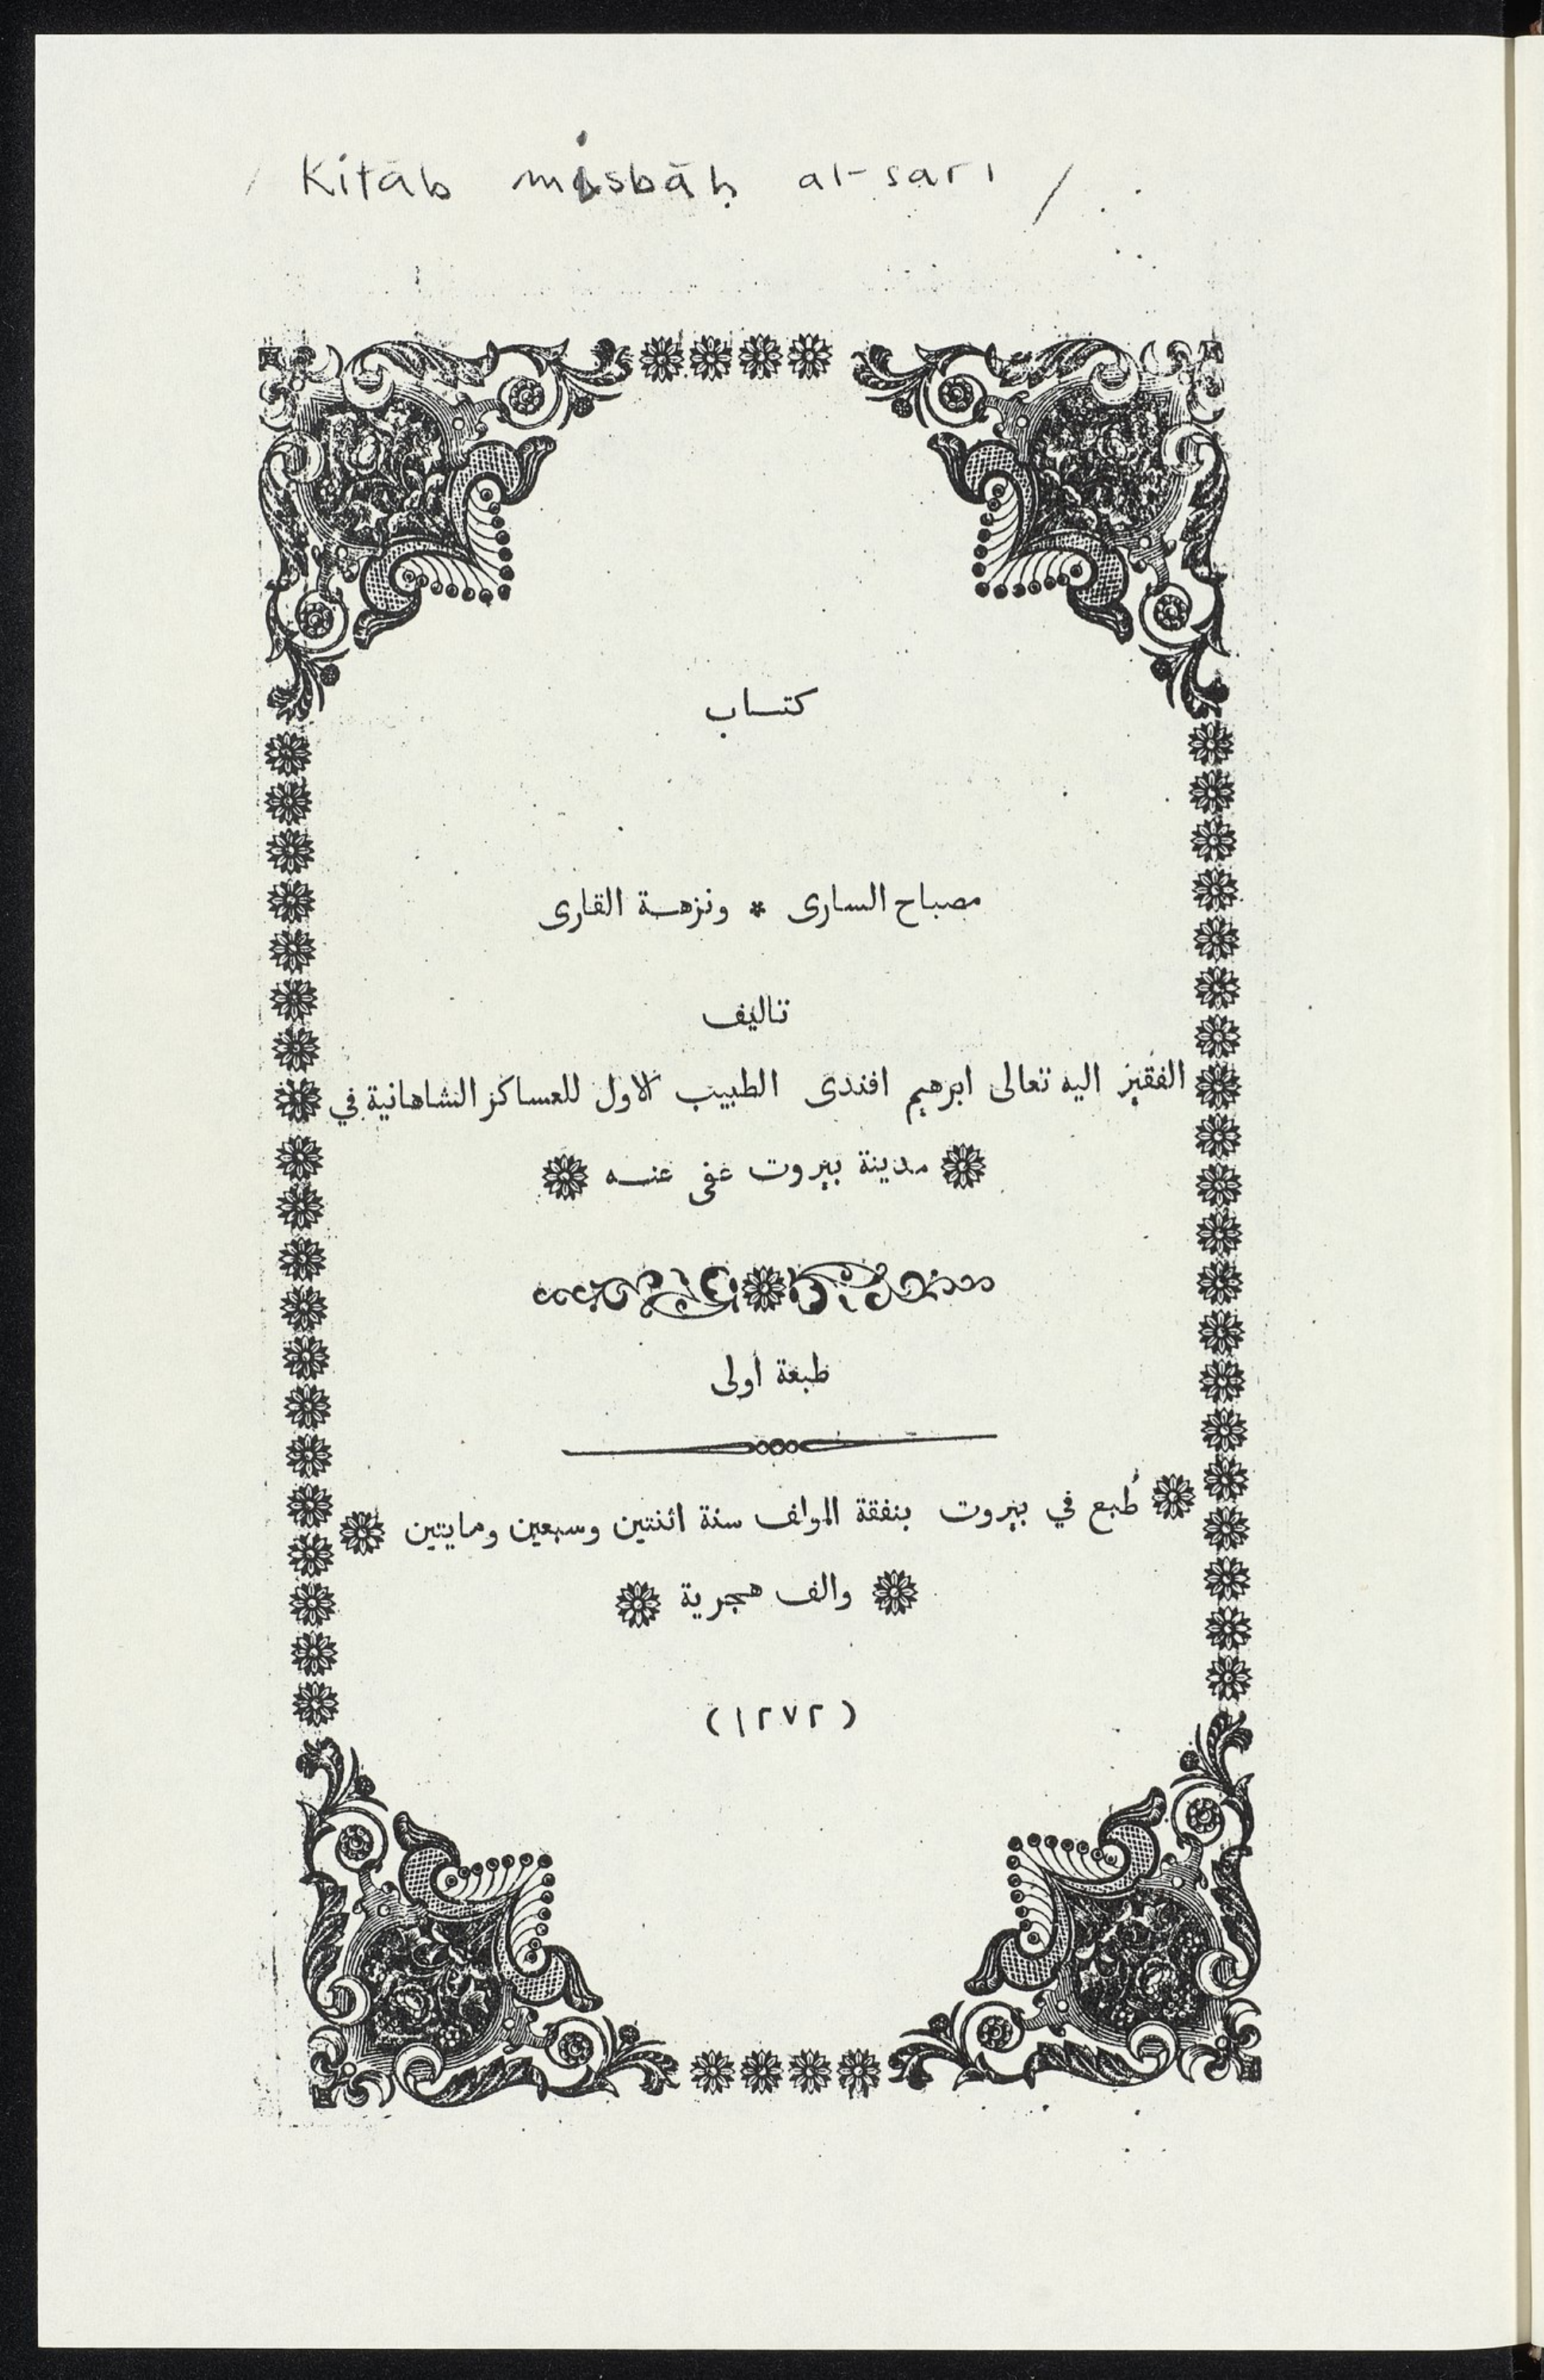 Kitāb misbāḥ al-sārī /
كتاب
مصباح السارى * ونزهة القارى
تاليف
الفقير اليه تعالى ابرهيم افندى الطبيب الاول للعساكر الشاهانية في
مدينة بيروت عفى عنه
طبعة اولى
طُبع في بيروت بنفقة المولف سنة اثنتين وسبعين ومايتين
والف هجرية
(١٢٧٢)